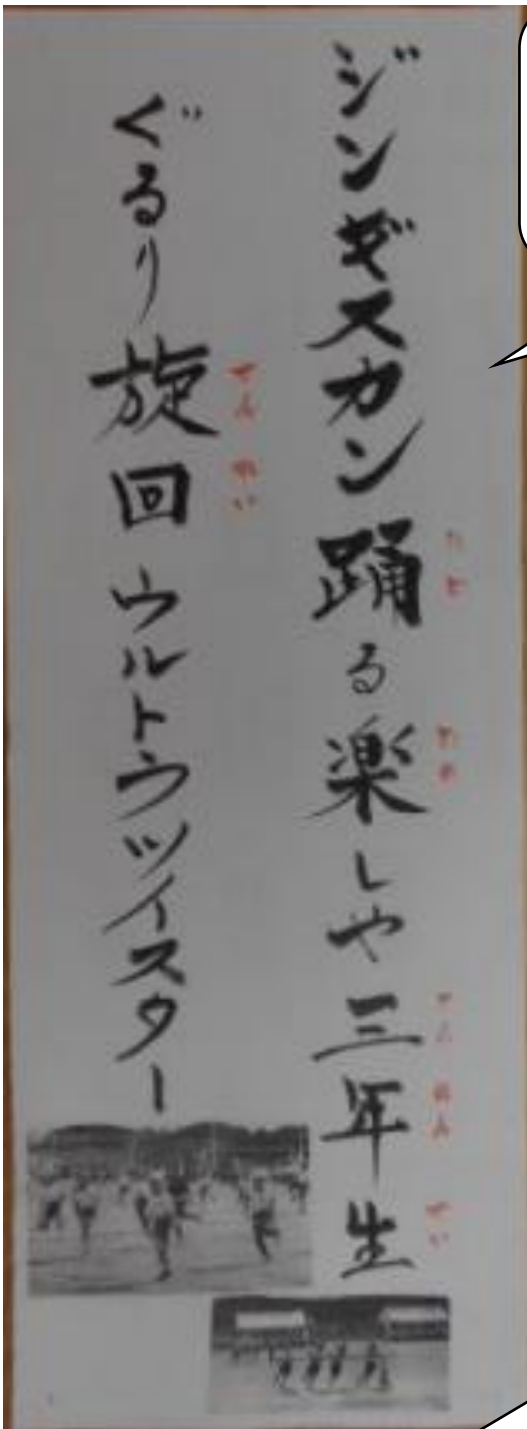 ジンギスカン踊る楽しや三年生
ぐるり旋回ウルトラツイスター